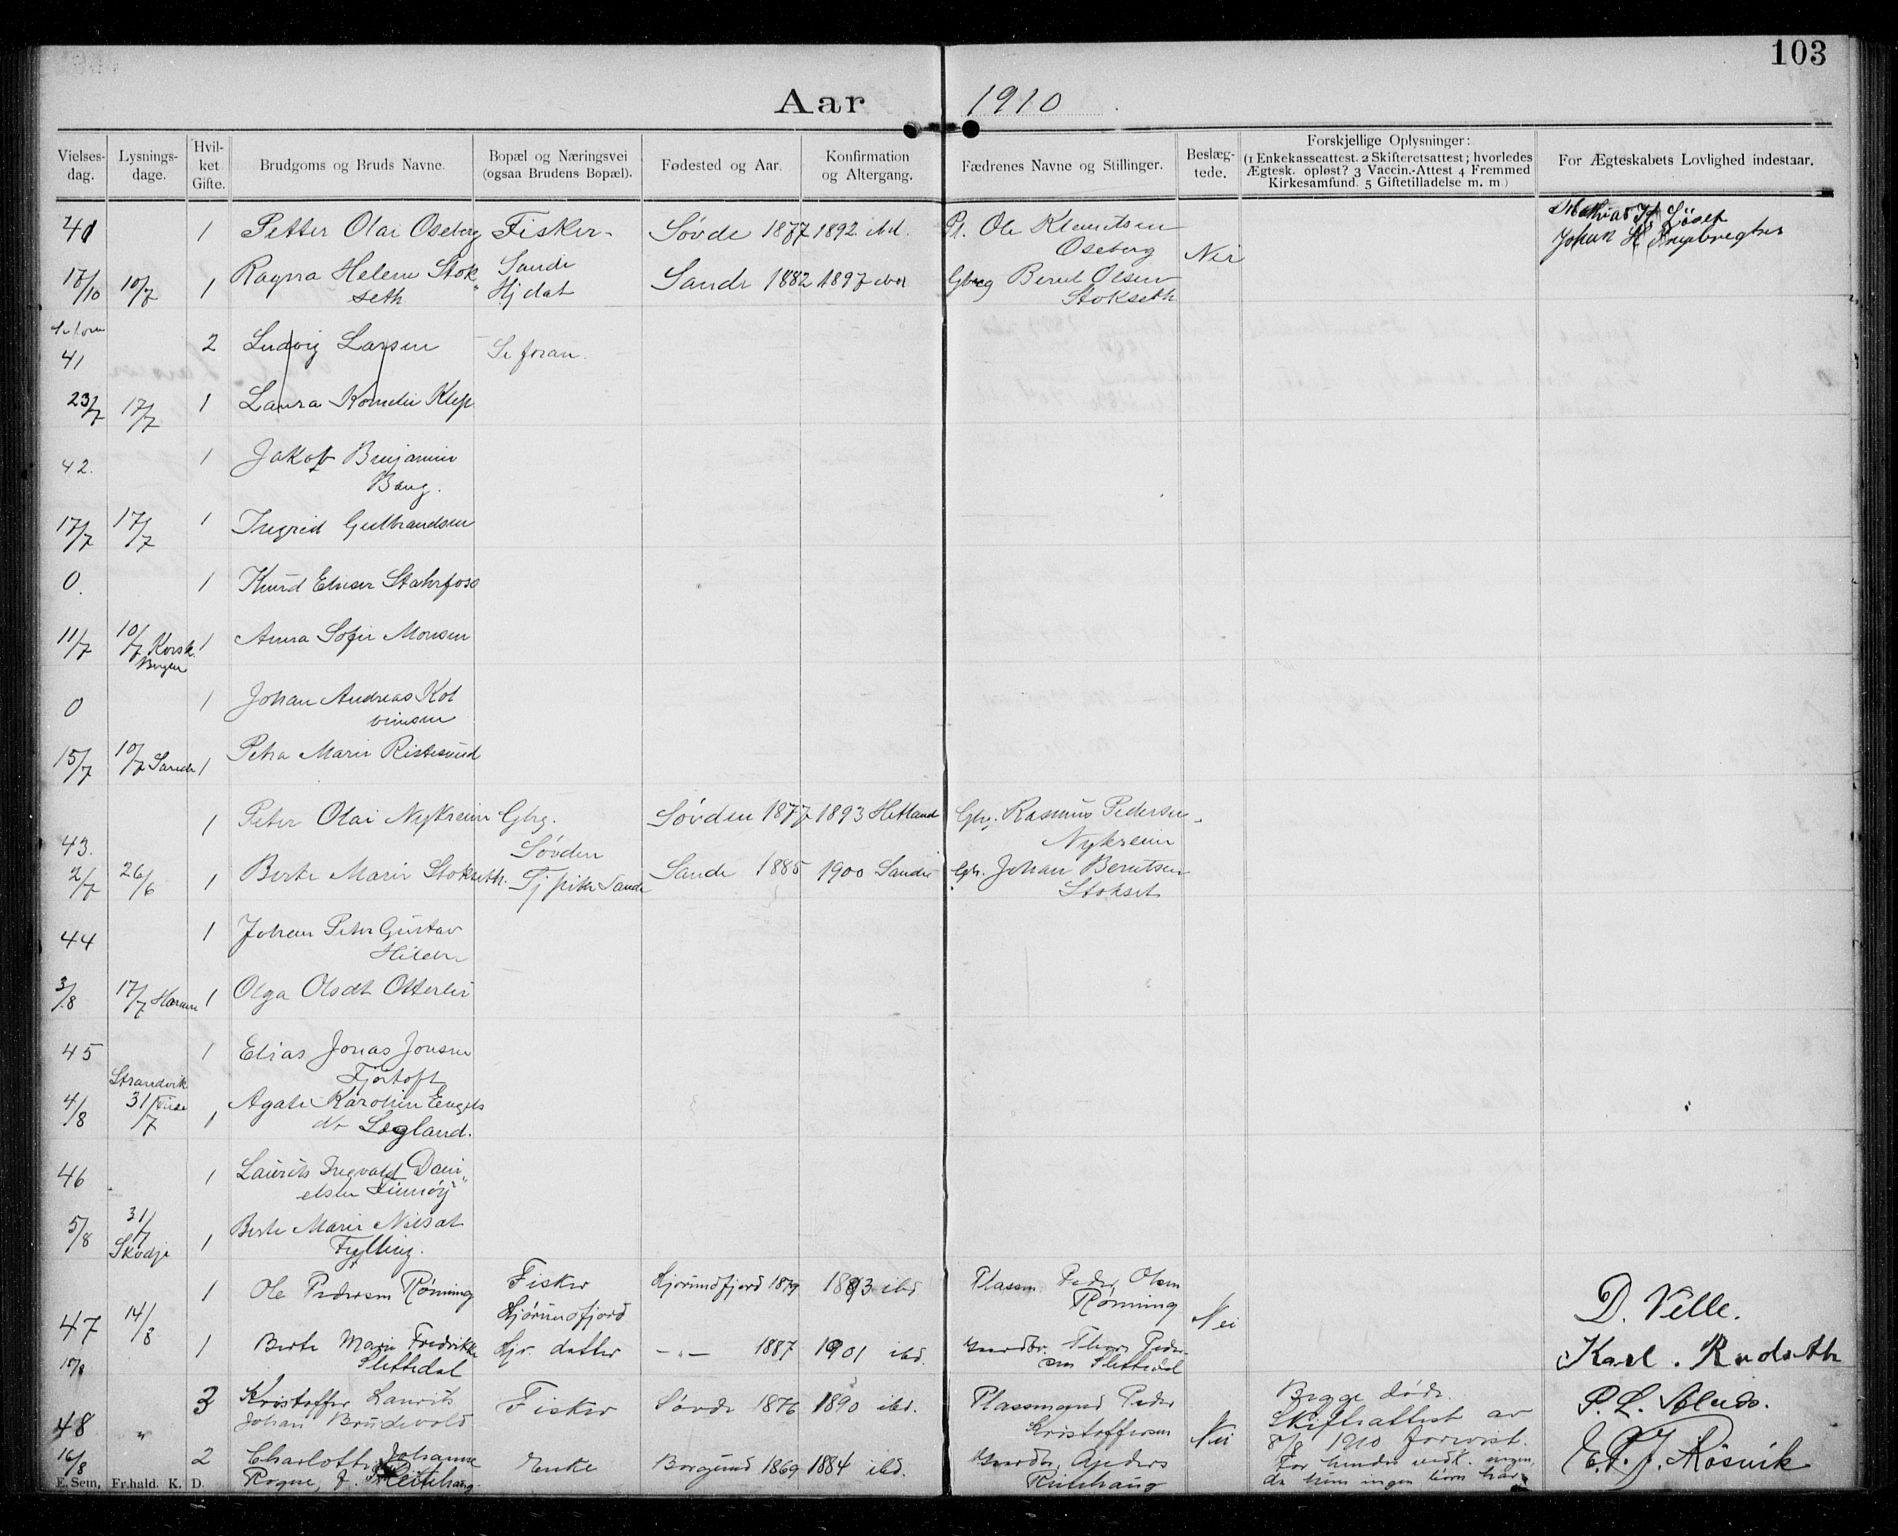 103
Aar 1910
Vielses-dag. Lysnings-dage. Hvil-ket Gifte. Brudgoms og Bruds Navne. Bopæl og Næringsvei (ogsaa Brudens Bopæl). Fødested og Aar. Konfirmation og Altergang. Fædrenes Navne og Stillinger. Beslæg-tede. Forskjellige Oplysninger: (1 Enkekasseattest. 2 Skifteretsattest; hvorledes Ægtesk. opløst? 3 Vaccin.-Attest 4 Fremmed Kirkesamfund. 5 Giftetilladelse m. m) For Ægteskabets Lovlighed indestaar.
41 1 Petter Olai Oseberg Fisker- Søvde 1877 1892 ibd. Pl. Ole Klemetsen Mathias K Løset
Oseberg Nei Johan H
17/10 10/7 1 Ragna Helene Stok Sande Sande 1882 1897 ibd Gbrg Bernt Olsen
seth Hj dat Stokseth
41 2 Ludvig Larsen Se foran.
23/7 17/7 1 Laura Kornelie Klep
42. 1 Jakob Benjamin
Bang.
17/7 17/7 1 Ingrid Gulbrandsen
0. 1 Knud Elieser Stahrfoss
11/7 10/7 Korsk. 1 Anna Sofie Monsen
Bergen
0 1 Johan Andreas Kol
vinsen
15/7 10/7 Sande 1 Petra Marie Ristesund
1 Peter Olai Nykreim Gbrg. Søvden 1877 1893 Hetland Gbrg. Rasmus Pedersen
43. Søvden Nykreim
2/7 26/6 1 Berte Marie Stokseth. Tj pike Sande Sande 1885 1900 Sande Gbr. Johan Berntsen
Stokset
44 1 Johan Peter Gustav
Hilde
3/8 17/7 Haram 1 Olga Olsdt Otterlei
45 1 Elias Jonas Jonsen
Strandvik Fjørtoft
4/8 31/7 1 Agate Karoline Engels
dt Lægland.
46 1 Laurits Ingvald Dani
elsen Finnøy
5/8 31/7 1 Berte Marie Nilsdt
Skodje Fylling.
1 Ole Pedersen Rønning Fisker Hjørundfjord 1879 1893 ibd Plassm. Peder Olsen
47 14/8 Hjørundfjord Rønning Nei D. Velle.
15/8 1 Berte Marie Fredrikke Hjv. datter —„— 1887 1901 ibd. Gaardbr. Thore Peder- Karl. Rudseth
Slettedal sen Slettedal
3 Kristoffer Laurits Fisker Søvde 1876 1890 ibd. Plassmand Peder Begge døde. P. L. Aluds.
48 „ Johan Brudevold Kristoffersen Nei Skifteattest av
8/8 1910 forevist.
16/8 2 Charlotte Johanne Enke Borgund 1869 1884 ibd. Gaardbr. Anders For hendes vedk. ingen, E. P. J. Røsvik
Rogne, f. Reitehaug Reitehaug da hun ingen barn har
E. Sem, Fr.hald. K. D.